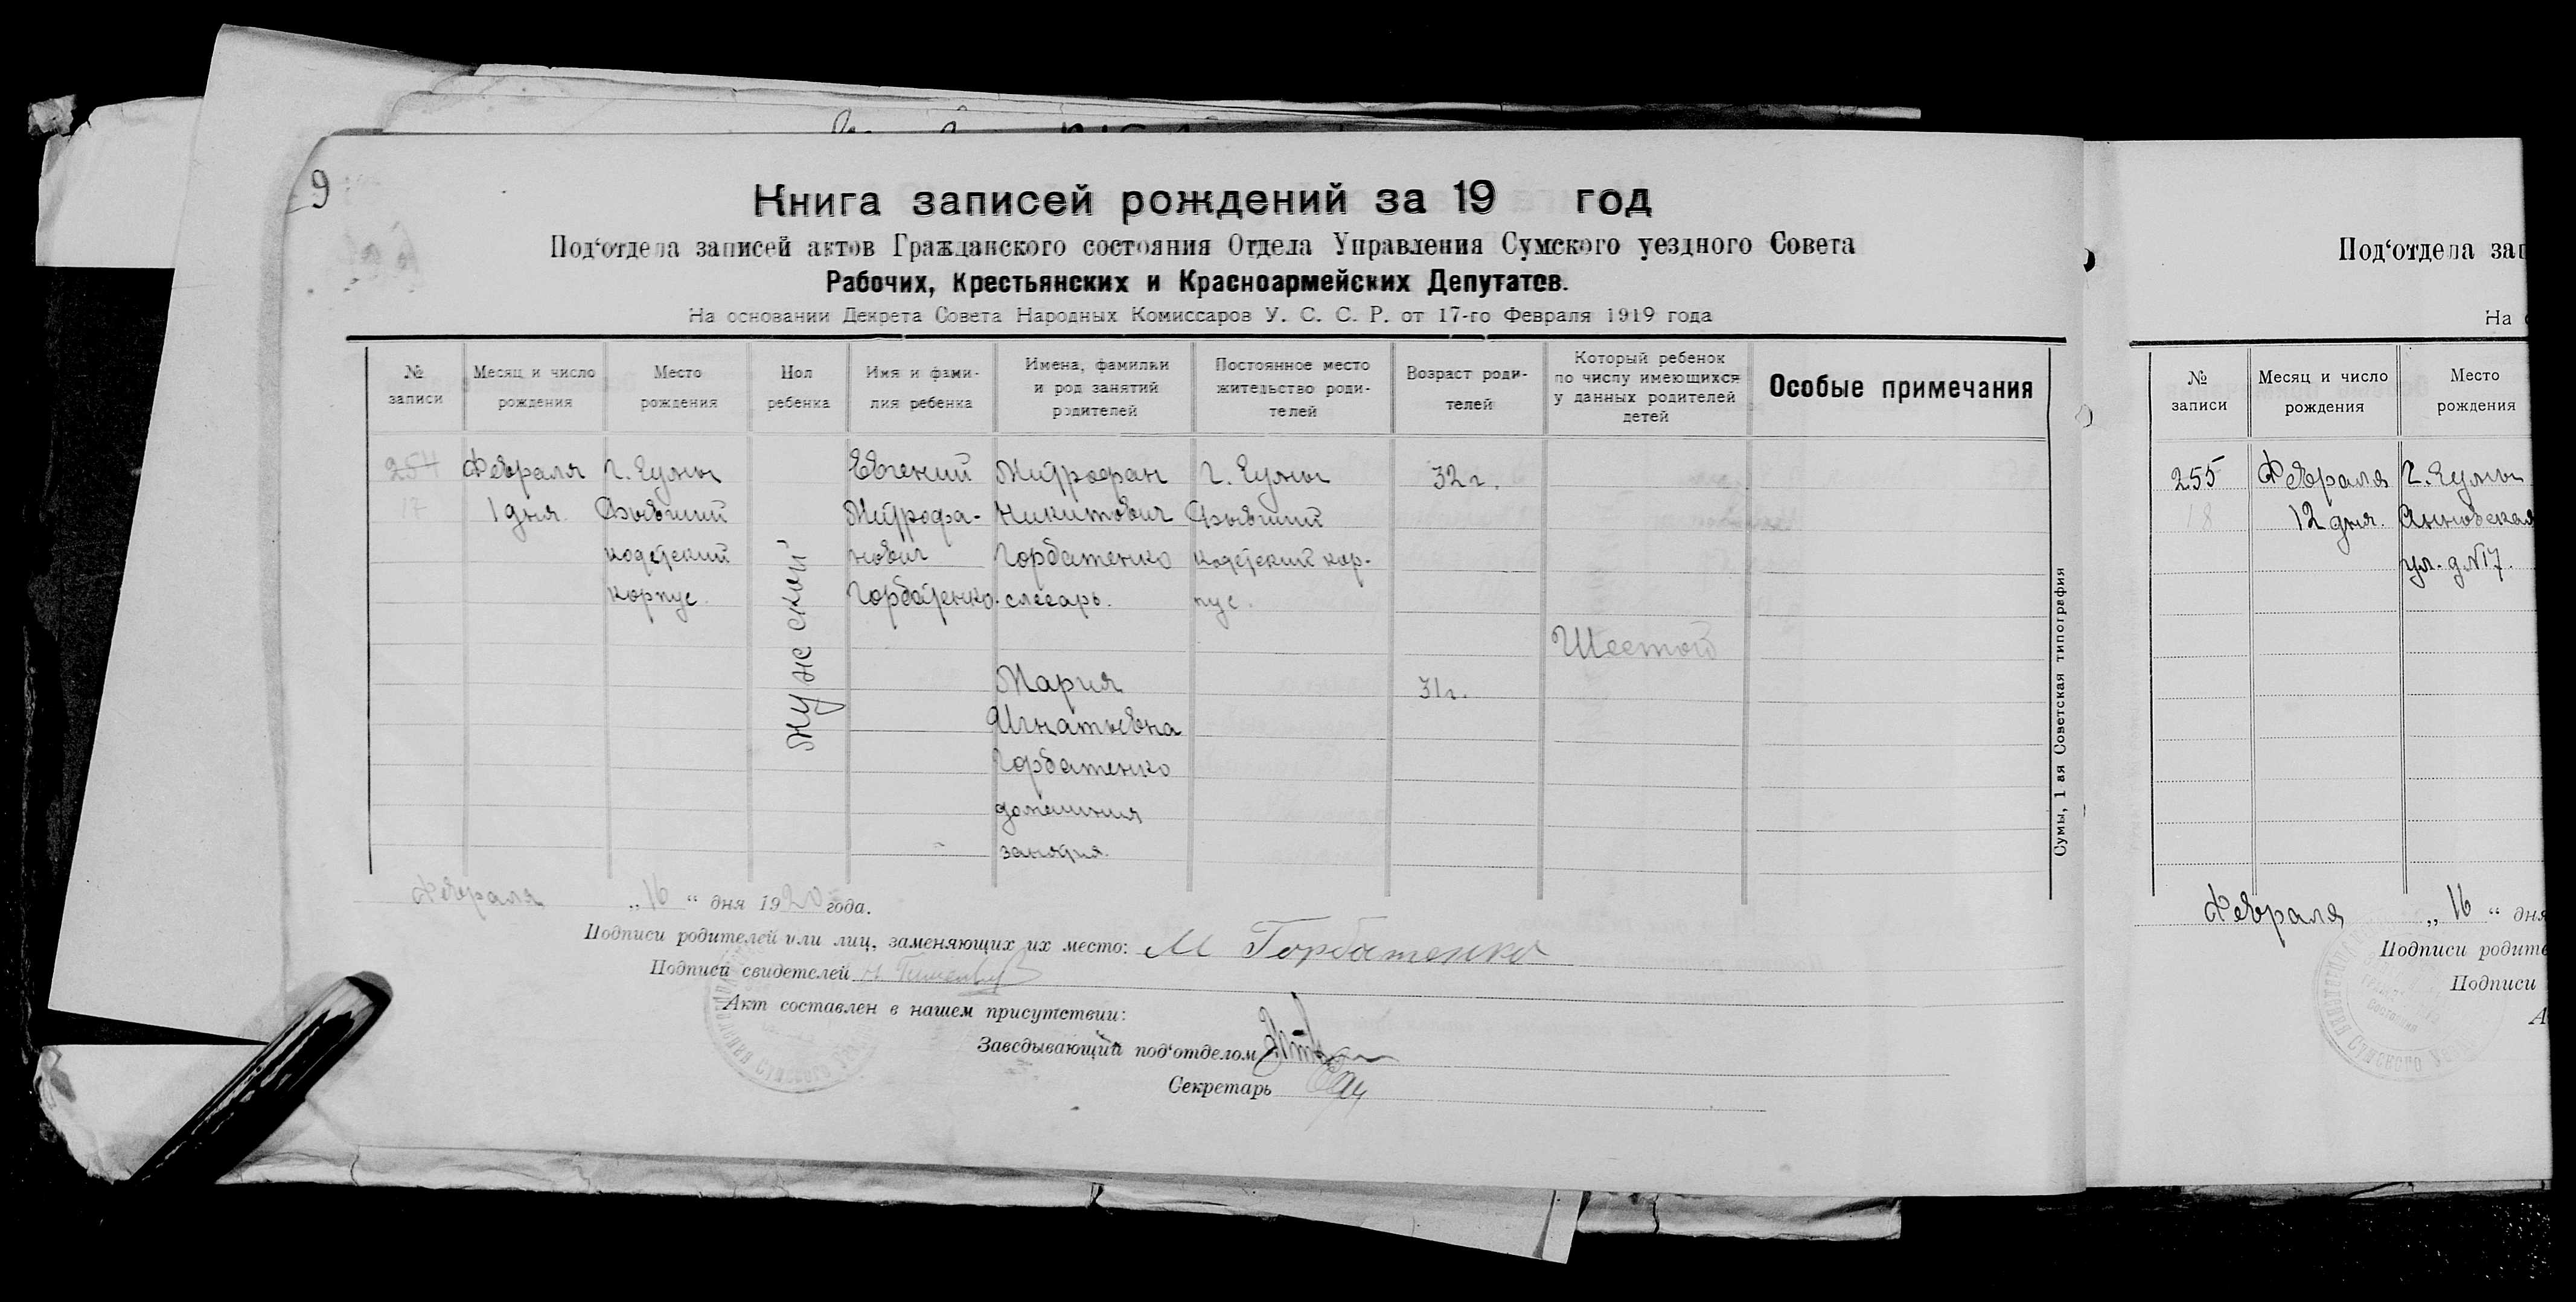 9
Книга записей рождений за 19 год
Под'отдела записей актов Гражданского состояния Отдела Управления Сумского уездного Совета
Рабочих, Крестьянских и Красноармейских Депутатов.
На основании Декрета Совета Народных Комиссаров У. С. С. Р. от 17-го Февраля 1919 года
№ записи
Месяц и число рождения
Место рождения
Пол ребенка
Имя и фамилия ребенка
Имена, фамилии и род занятий родителей
Постоянное место жительство родителей
Возраст родителей
Который ребенок по числу имеющихся у данных родителей детей
Особые примечания
254
17
Февраля
1 дня.
г. Сумы
Бывший
кадетский
корпус.
мужской
Евгений
Митрофа-
нович
Горбатенко.
Митрофан
Никитович
Горбатенко
слесарь.
Мария
Игнатьевна
Горбатенко
домашния
занятия.
г. Сумы
Бывший
кадетский кор-
пус.
32 г.
31 г.
Шестой
Февраля „16“ дня 1920 года.
Подписи родителей или лиц, заменяющих их место: М Горбатенко
Подписи свидетелей
Акт составлен в нашем присутствии:
Заведывающий под'отделом
Секретарь
Сумы, 1-ая Советская типография
Под'отдела зап
На о
№ записи
Месяц и число рождения
Место рождения
255
18
Февраля
12 дня.
г. Сумы
Анновская
ул. д №17.
Февраля „16“ дня
Подписи родите
Подписи
А